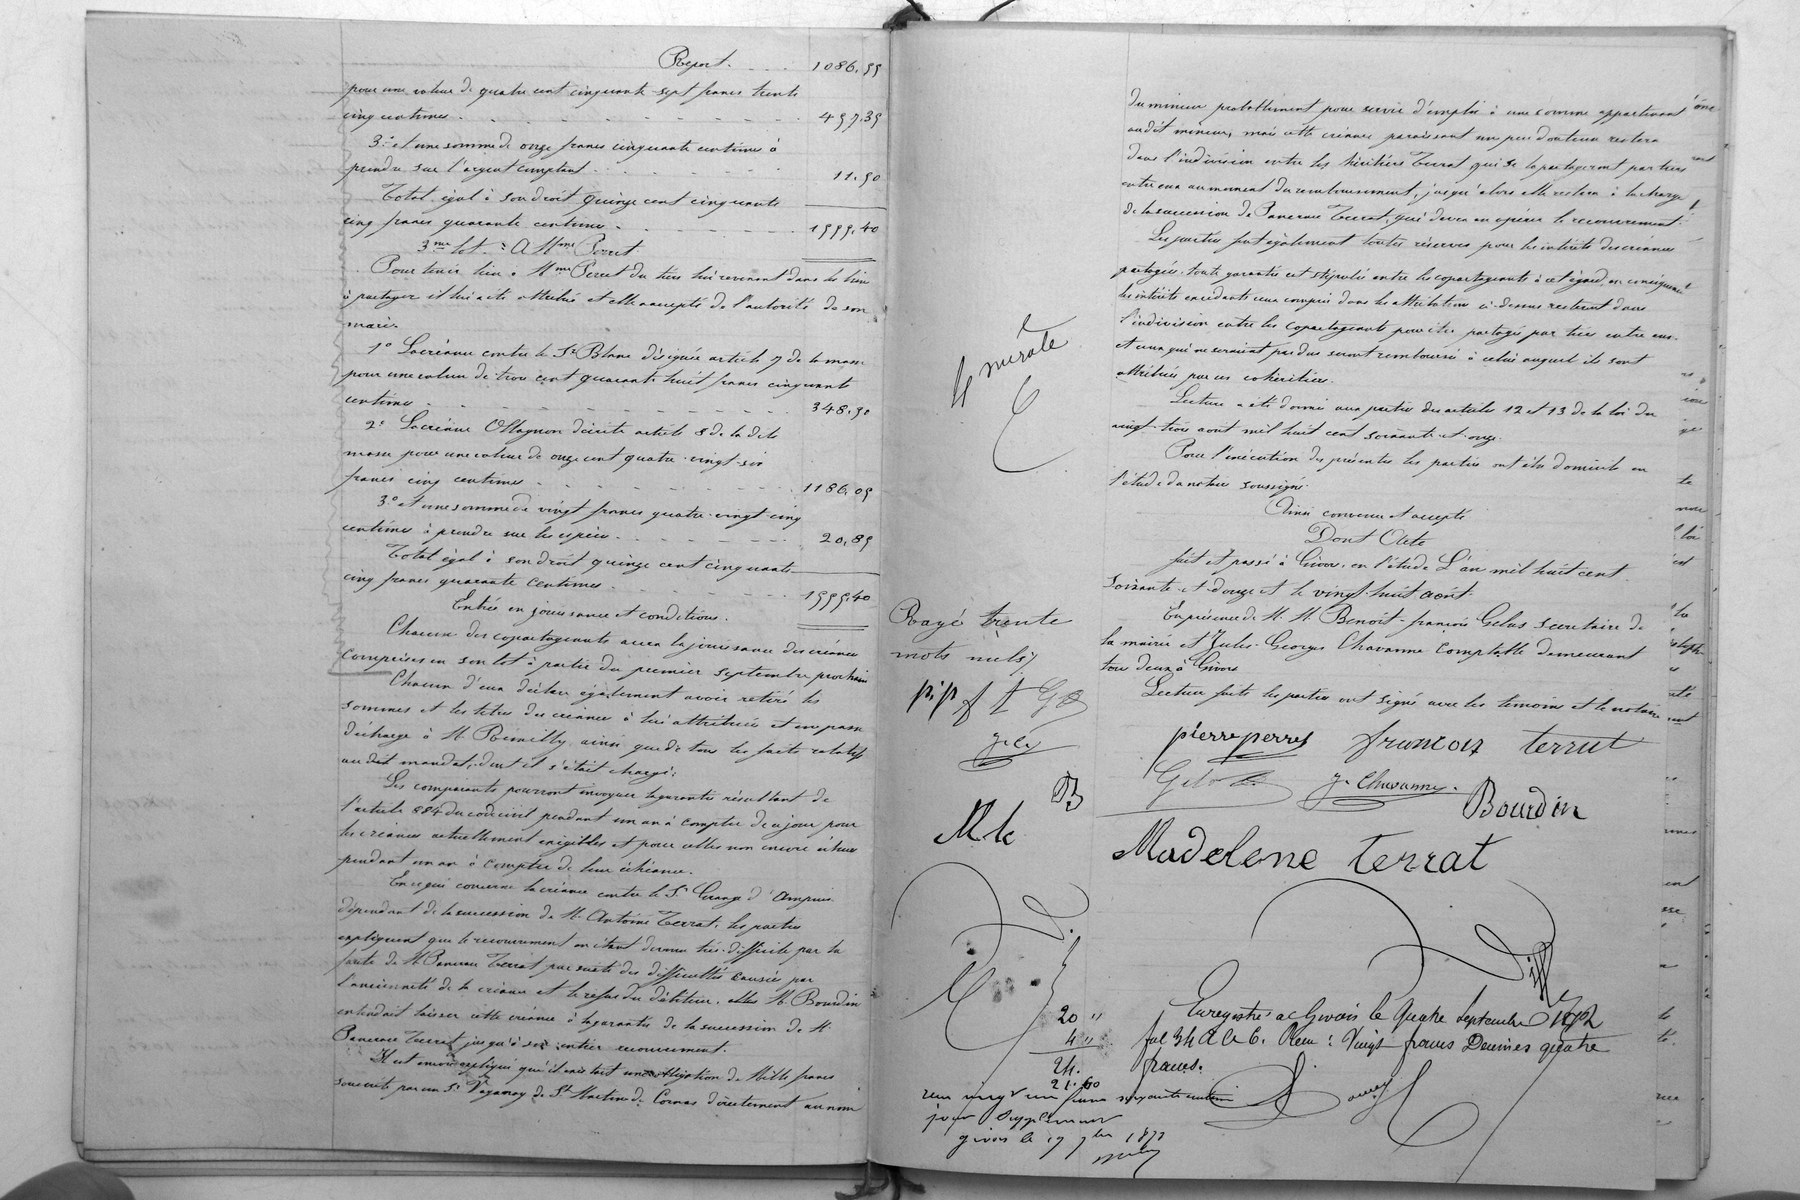 Report. . . . 1086,55
pour une valeur de quatre cent cinquante sept francs trente
cinq centimes . . . . . . 457,35
3º et une somme de onze francs cinquante centimes à
prendre sur l'argent comptant . . . . . 11,50
Total égal à son droit quinze cent cinquante
cinq francs quarante centimes . . . . . 1555,40
3me lot : A Mme Perret
Pour tenir lieu à Mme Perret du tiers lui revenant dans les biens
à partager il lui a été attribué et elle a accepté de l'autorité de son
mari.
1º La créance contre le Sr Blanc désignée article 7 de la masse
pour une valeur de trois cent quarante huit francs cinquante
centimes . . . . . . 348,50
2º La créance Ollagnon décrite article 8 de la dite
masse pour une valeur de onze cent quatre-vingt-six
francs cinq centimes . . . . . . 1186,05
3º et une somme de vingt francs quatre-vingt-cinq
centimes à prendre sur les espèces . . . . . 20,85
Total égal à son droit quinze cent cinquante
cinq francs quarante centimes . . . . . 1555,40
Entrée en jouissance et conditions.
Chacun des copartageants aura la jouissance des créances
comprises en son lot à partir du premier septembre prochain
Chacun d'eux déclare également avoir retiré les
sommes et les titres des créances à lui attribués et en passe
décharge à M. Remilly ainsi que de tous les faits relatifs
au dit mandat, dont il s'était chargé.
Les comparants pourront invoquer la garantie résultant de
l'article 884 du code civil pendant un an à compter de ce jour pour
les créances actuellement exigibles et pour celles non encore échues
pendant un an à compter de leur échéance.
En ce qui concerne la créance contre le Sr Grange d'Ampuis
dépendant de la succession de M. Antoine Terrat, les parties
expliquent que le recouvrement en étant devenu très difficile par la
faute de M. Pancrace Terrat par suite des difficultés causées par
l'ancienneté de la créance et le refus du débiteur, elles M. Bourdin
entendait laisser cette créance à la garantie de la succession de M.
Pancrace Terrat jusqu'à son entier recouvrement.
Il est encore expliqué qu'il existait une obligation de Mille francs
souscrite par un Sr de St Martin de Cornas directement au nom
du mineur probablement pour servir d'emploi à une somme appartenant
audit mineur, mais cette créance paraissant un peu douteuse restera
dans l'indivision entre les héritiers Terrat qui se la partageront par tiers
entre eux au moment du remboursement, jusqu'alors elle restera à la charge
de la succession de Pancrace Terrat, qui devra en opérer le recouvrement.
Les parties font également toutes réserves pour les intérêts des créances
partagées. toute garantie est stipulée entre les copartageants à cet égard, en conséquence
les intérêts excédants ceux compris dans les attributions ci-dessus resteront dans
l'indivision entre les copartageants pour être partagés par tiers entre eux.
et ceux qui ne seraient pas dus seront remboursés à celui auquel ils sont
attribués par ses cohéritiers.
Lecture a été donnée aux parties des articles 12 et 13 de la loi du
vingt-trois aout mil huit cent soixante-et-onze.
Pour l'exécution des présentes les parties ont élu domicile en
l'étude du notaire soussigné.
Ainsi convenu et accepté
Dont Acte
fait et passé à Givors, en l'étude L'an mil huit cent
soixante-et-douze et le vingt-huit aout.
En présence de M. M. Benoît-françois Gelas secretaire de
la mairie et Jules-Georges Chavanne comptable demeurant
tous deux à Givors
Lecture faite les parties ont signé avec les témoins et le notaire
Rayé trente
mots nuls
p.p
pierre perret françois terrat
J. Chavanne Bourdin
B
Madelene terrat
Enregistré à Givors le quatre septembre 1872
fol 34 R C 6. Reçu : Vingt francs Decimes quatre
francs.
20 "
4 "
24.
21.60
reçu vingt un francs soixante centimes
pour supplement
givors le 17 7bre 1872